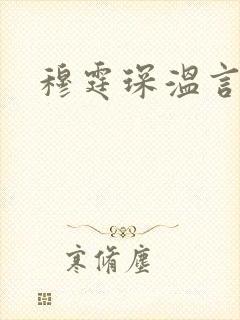 穆霆琛温言
寒脩塵